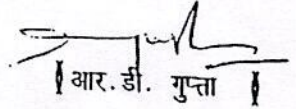 ( आर. डी. गुप्ता )